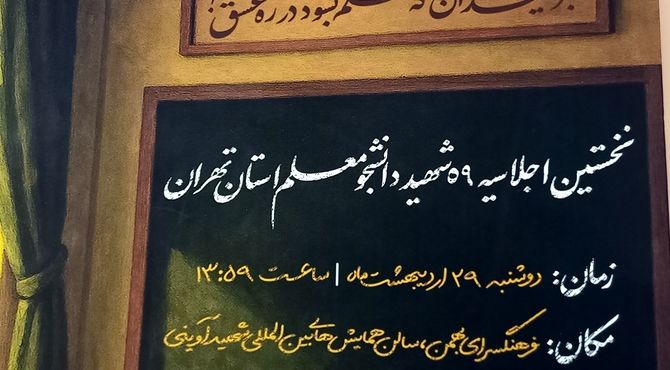 که معلم بشود در ره عشق!
نخستین اجلاسیه ۵۹ شهید دانشجو معلم استان تهران
زمان: دوشنبه ۲۹ اردیبهشت ماه | ساعت ۱۳:۵۹
مکان: فرهنگسرای بهمن، سالن همایش های بین المللی شهید آوینی